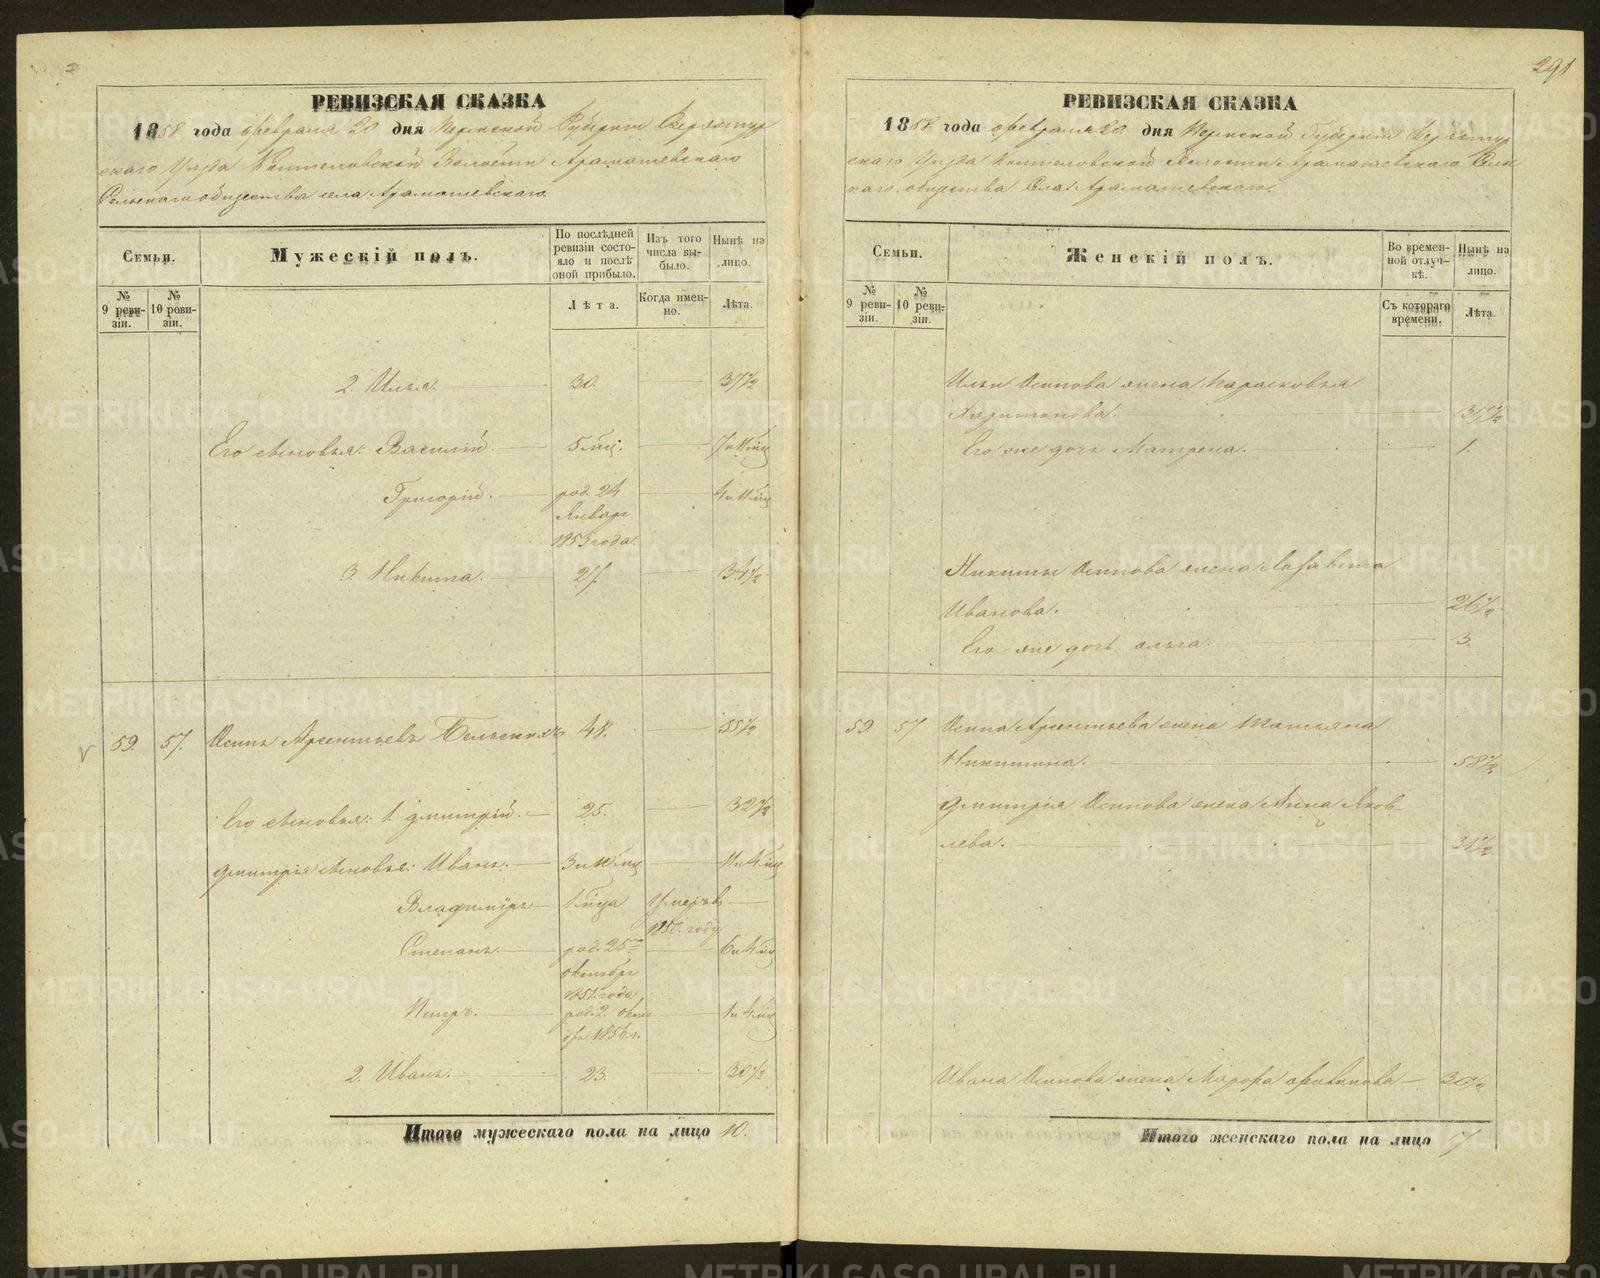 291
РЕВИЗСКАЯ СКАЗКА
1858 года февраля 20 дня Пермской Губернии Верхотур
скаго Уѣзда Волости Арамашевскаго
Сельскаго общества села Арамашевскаго
Семьи.
Мужескій полъ.
По послѣдней ревизіи состояло и послѣ оной прибыло.
Изъ того числа выбыло.
Нынѣ на лицо.
№ 9 ревизіи.
№ 10 ревизіи.
Лѣта.
Когда именно.
Лѣта.
2. Илья. 30. 37½
Его сыновья: Василій. 5 мѣц. 7 и 11 мѣц
Григорій. род. 24 4 и 11 мѣц
Января
1853 года.
3. Никита. 27. 34½
59. 57. Осипъ Арсентьевъ 48. 55½
Его сыновья: 1. Дмитрій. 25. 32½
Дмитрія сыновья: Иванъ. 3 и 10 мѣц 11 и 4 мѣц
Владимиръ 1 мѣца Умеръ
185 году
Степанъ. род. 25 6 и 4 мѣц
октября
1851 года
Петръ. род. 2. октя 1 и 4 мѣц
бря 1856 г.
2. Иванъ. 23. 30½
Итого мужескаго пола на лицо 10.
РЕВИЗСКАЯ СКАЗКА
1858 года февраля 20 дня Пермской Губерніи Верхотур
скаго Уѣзда Волости Арамашевскаго Сель
каго общества Села Арамашевскаго.
Семьи.
Женскій полъ.
Во временной отлучкѣ.
Нынѣ на лицо.
№ 9 ревизіи.
№ 10 ревизіи.
Съ котораго времени.
Лѣта.
Ильи Осипова жена Парасковья
Харитонова. 37½
Его же дочь Матрена. 1.
Никиты Осипова жена Лизавета
Иванова. 26½
Его же дочь Ольга. 3.
59. 57 Осипа Арсентьева жена Татьяна
Никитина. 58½
Дмитрія Осипова жена Анна Яков
лева. 31½
Ивана Осипова жена 30½
Итого женскаго пола на лицо 7
METRIKI.GASO-URAL.RU